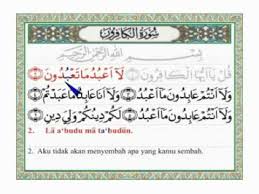 سُورَةُ الْكَافِرُونَ
بِسْمِ اللَّهِ الرَّحْمَٰنِ الرَّحِيمِ
قُلْ يَٰٓأَيُّهَا الْكَٰفِرُونَ ۝ لَآ أَعْبُدُ مَا تَعْبُدُونَ ۝
وَلَآ أَنْتُمْ عَٰبِدُونَ مَآ أَعْبُدُ ۝ وَلَآ أَنَا۠ عَابِدٌ مَّا عَبَدْتُّمْ ۝
وَلَآ أَنْتُمْ عَٰبِدُونَ مَآ أَعْبُدُ ۝ لَكُمْ دِينُكُمْ وَلِيَ دِينِ ۝
2. Lā a'budu mā ta'budūn.
2. Aku tidak akan menyembah apa yang kamu sembah.